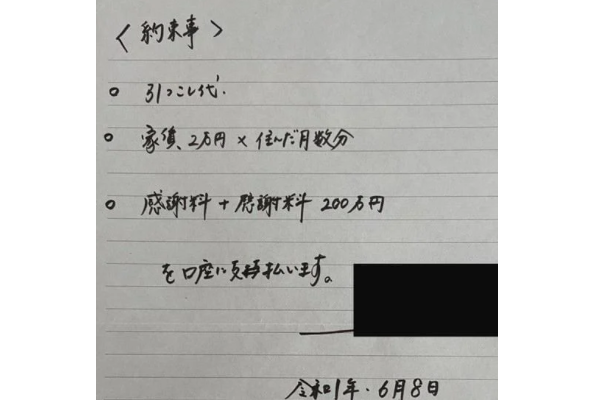 <約束事>
○ 引っこし代.
○ 家賃、2万円 × 住んだ月数分
○ 感謝料 + 慰謝料 200万円
を口座に支払います。
令和1年.6月8日